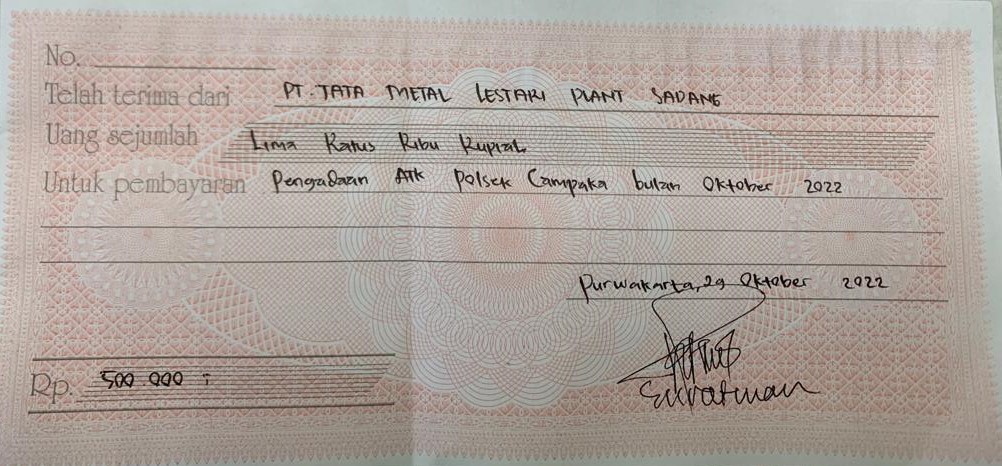 No.
Telah terima dari PT. TATA METAL LESTARI PLANT SADANG
Uang sejumlah Lima Ratus Ribu Rupiah
Untuk pembayaran Pengadaan ATK Polsek Campaka bulan Oktober 2022
Purwakarta, 29 Oktober 2022
Rp. 500.000